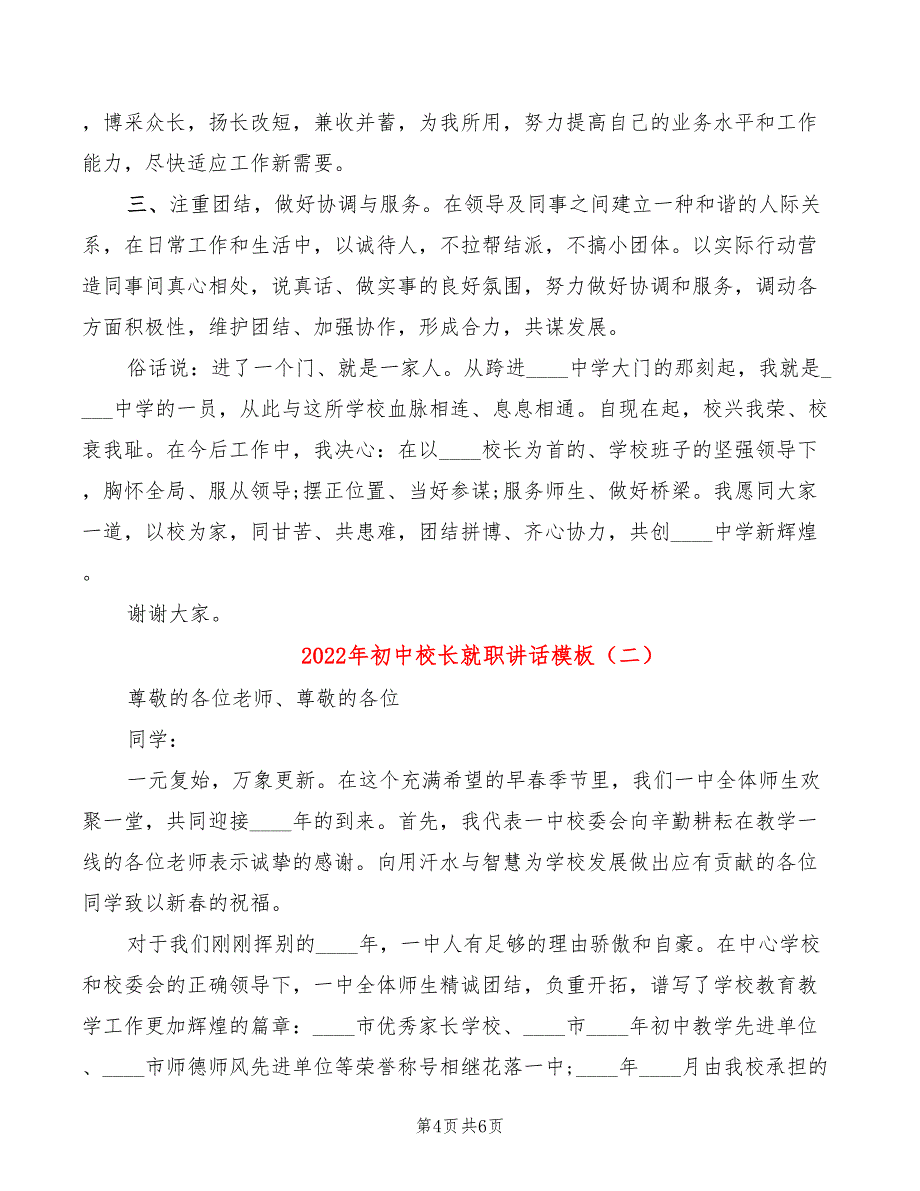 ，博采众长，扬长改短，兼收并蓄，为我所用，努力提高自己的业务水平和工作
能力，尽快适应工作新需要。
三、注重团结，做好协调与服务。在领导及同事之间建立一种和谐的人际关
系，在日常工作和生活中，以诚待人，不拉帮结派，不搞小团体。以实际行动营
造同事间真心相处，说真话、做实事的良好氛围，努力做好协调和服务，调动各
方面积极性，维护团结、加强协作，形成合力，共谋发展。
俗话说：进了一个门、就是一家人。从跨进____中学大门的那刻起，我就是_
___中学的一员，从此与这所学校血脉相连、息息相通。自现在起，校兴我荣、校
衰我耻。在今后工作中，我决心：在以____校长为首的、学校班子的坚强领导下
，胸怀全局、服从领导;摆正位置、当好参谋;服务师生、做好桥梁。我愿同大家
一道，以校为家，同甘苦、共患难，团结拼博、齐心协力，共创____中学新辉煌
。
谢谢大家。
2022年初中校长就职讲话模板（二）
尊敬的各位老师、尊敬的各位
同学：
一元复始，万象更新。在这个充满希望的早春季节里，我们一中全体师生欢
聚一堂，共同迎接____年的到来。首先，我代表一中校委会向辛勤耕耘在教学一
线的各位老师表示诚挚的感谢。向用汗水与智慧为学校发展做出应有贡献的各位
同学致以新春的祝福。
对于我们刚刚挥别的____年，一中人有足够的理由骄傲和自豪。在中心学校
和校委会的正确领导下，一中全体师生精诚团结，负重开拓，谱写了学校教育教
学工作更加辉煌的篇章：____市优秀家长学校、____市____年初中教学先进单位
、____市师德师风先进单位等荣誉称号相继花落一中;____年____月由我校承担的
第4页共6页